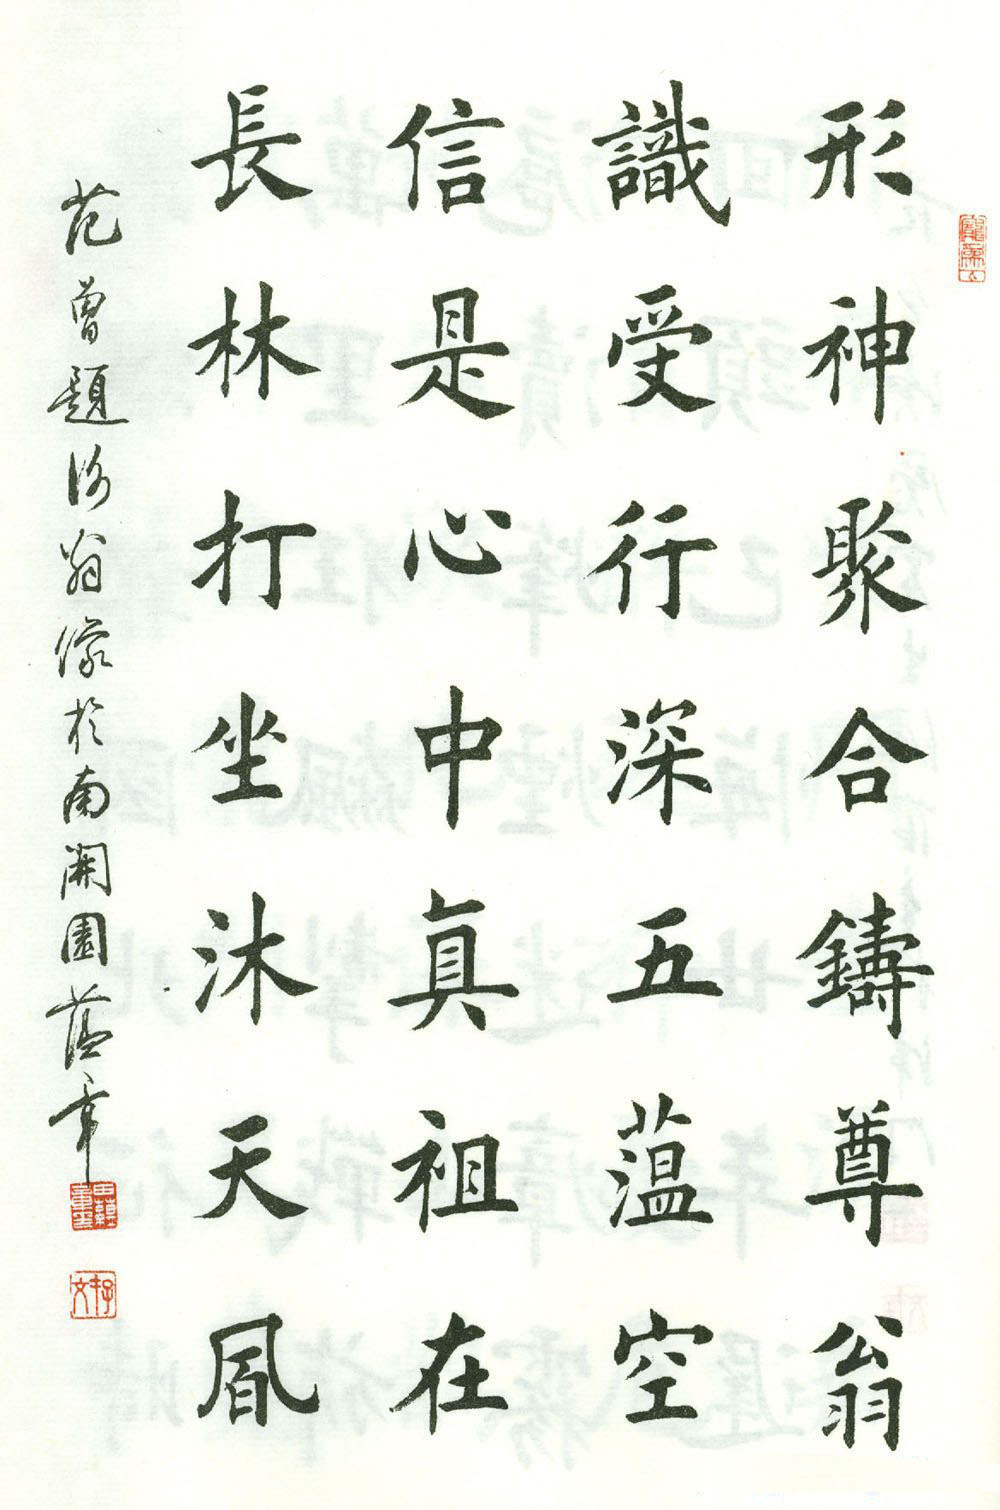 形神聚合鑄尊翁
識受行深五蕰空
信是心中真祖在
長林打坐沐天風
范曾題
翁像於南開園蕰章